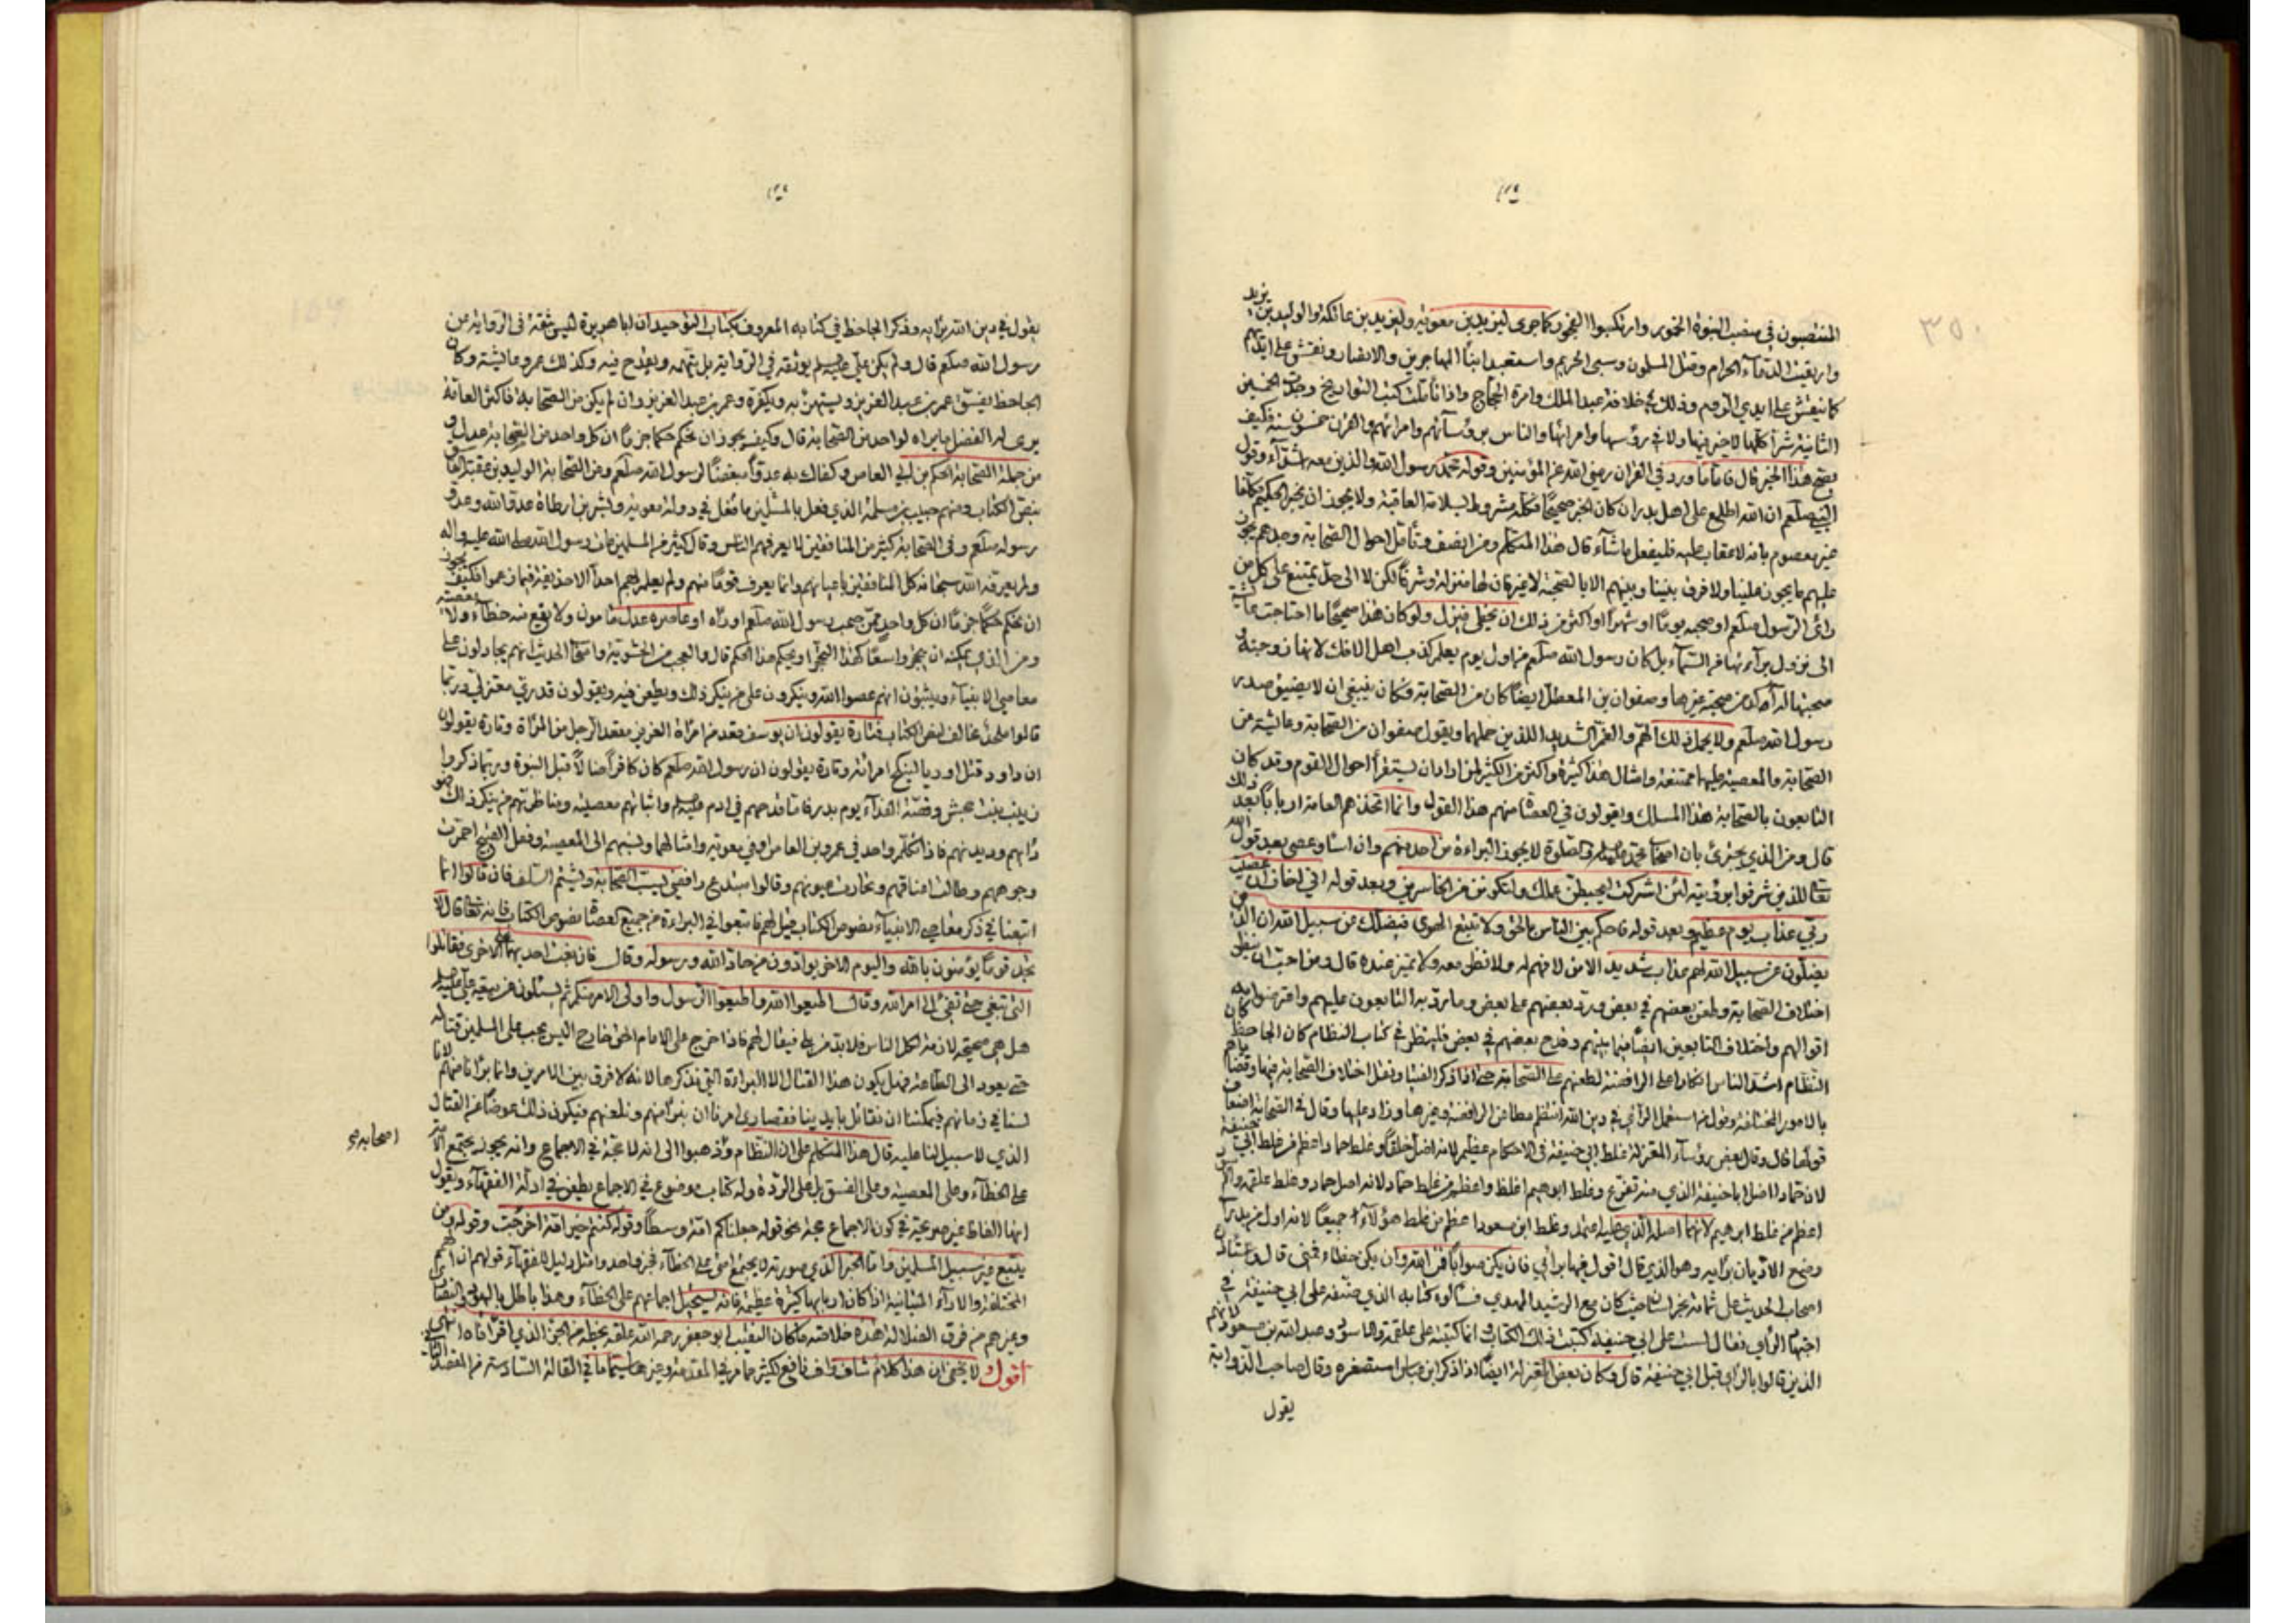 المنتصبون في منصب النبوة الخمور وارتكبوا الفجور كما جرى ليزيد بن معوية وليزيد بن عاتكة والوليد بن يزيد
واريقت الدماء الحرام وقتل المسلمون وسبي الحريم واستعبد ابناء المهاجرين والانصار ونقش على ايديهم
كما ينقش على ايدي الروم وذلك في خلافة عبد الملك وامرة الحجاج واذا تأملت كتب التواريخ وجدت الخمسين
الثانية شرا كلها لا خير فيها ولا في رؤسها وامرائها والناس برؤسائهم وامرائهم والقرن خمسون سنة فكيف
يصح هذا الخبر قال فاما ما ورد في القران رضي الله عن المؤمنين وقوله محمد رسول الله والذين معه اشداء وقول
النبي صلعم ان الله اطلع على اهل بدر ان كان الخبر صحيحا فكله مشروط بسلامة العاقبة ولا يجوز ان يخبر الحكيم مكلفا
غير معصوم بانه لا عقاب عليه فليفعل ما شاء قال هذا المتكلم ومن انصف وتأمل احوال الصحابة وجدهم يجوز
عليهم ما يجوز علينا ولا فرق بيننا وبينهم الا بالصحبة لا غير فان لها منزلة وشرفا لكن لا الى حد يمتنع على كل من
رأى الرسول صلعم او صحبه يوما او شهرا او اكثر من ذلك ان يخطي ويزل ولو كان هذا صحيحا ما احتاجت عائشة
الى نزول براءتها من السماء بل كان رسول الله صلعم من اول يوم يعلم كذب اهل الافك لانها زوجته و
صحبتها له آكد من صحبة غيرها وصفوان بن المعطل ايضا كان من الصحابة فكان ينبغي ان لا يضيق صدر
رسول الله صلعم ولا يحمل ذلك الهم والغم الشديد اللذين حملهما ويقول صفوان من الصحابة وعائشة من
الصحابة والمعصية عليهما ممتنعة وامثال هذا كثيرة واكثر من الكثير لمن اراد ان يستقرأ احوال القوم وقد كان
التابعون بالصحابة هذا المسلك ويقولون في العصاة منهم هذا القول وانما اتخذهم العامة اربابا بعد ذلك
قال ومن الذي يجترئ بان اصحاب محمد لا يجوز البراءة من احد منهم وان اساء وعصى بعد قول الله
تعالى للذي شرفوا برؤيته لئن اشركت ليحبطن عملك ولتكونن من الخاسرين وبعد قوله اني اخاف ان عصيت
ربي عذاب يوم عظيم وبعد قوله فاحكم بين الناس بالحق ولا تتبع الهوى فيضلك عن سبيل الله ان الذين
يضلون عن سبيل الله لهم عذاب شديد الا من لا فهم له ولا نظر معه ولا تميز عنده قال ومن احب ان ينظر
اختلاف الصحابة وطعن بعضهم في بعض ورد بعضهم على بعض وما رد به التابعون عليهم واعترضوا به
اقوالهم واختلاف التابعين ايضا فيما بينهم وقدح بعضهم في بعض فلينظر في كتاب النظام كان الجاحظ كان
النظام اشد الناس انكارا على الرافضة لطعنهم على الصحابة حتى اذا ذكر الفتيا وتنقل اختلاف الصحابة فيها وقضاياهم
بالامور المختلفة وقول من استعمل الرأي في دين الله انتظم مطاعن الرافضة وغيرها وزاد عليها وقال في الصحابة اضعاف
قولها قال وقال بعض رؤساء المعتزلة غلط ابي حنيفة في الاحكام عظيم لانه اضل خلقا وغلط حماد اعظم من غلط ابي حنيفة
لان حمادا اصل ابا حنيفة الذي منه تفرع وغلط ابرهيم اغلظ واعظم من غلط حماد لانه اصل حماد وغلط علقمة والاسود
اعظم من غلط ابرهيم لانهما اصله الذي عليه اعتمد وغلط ابن مسعود اعظم من غلط هؤلاء جميعا لانه اول من بدر الى
وضع الاديان برايه وهو الذي قال اقول فيها برأيي فان يكن صوابا فمن الله وان يكن خطاء فمني قال واستأذن
اصحاب الحديث على ثمامة بخراسان حيث كان مع الرشيد المهدي فسألوه كتابه الذي صنفه على ابي حنيفة في
اجتهاد الرأي فقال لست على ابي حنيفة كتبت ذلك الكتاب وانما كتبته على علقمة والاسود وعبد الله بن مسعود لانهم
الذين قالوا بالراي قبل ابي حنيفة قال وكان بعض المعتزلة ايضا اذا ذكر ابن عباس استصغره وقال صاحب الذوابة
يقول
يقول في دين الله برايه وذكر الجاحظ في كتابه المعروف بكتاب التوحيد ان ابا هريرة ليس بثقة في الرواية عن
رسول الله صلعم قال ولم يكن علي عليه السلم يوثقه في الرواية بل يتهمه ويقدح فيه وكذلك عمر وعائشة وكان
الجاحظ يفسق عمر بن عبد العزيز ويستهزئ به ويكفره وعمر بن عبد العزيز وان لم يكن من الصحابة فاكثر العامة
يرى له الفضل ما يراه لواحد من الصحابة قال وكيف يجوز ان نحكم حكما جزما ان كل واحد من الصحابة عدل و
من جملة الصحابة الحكم بن ابي العاص وكفاك به عدوا مبغضا لرسول الله صلعم ومن الصحابة الوليد بن عقبة الفاسق
بنص الكتاب ومنهم حبيب بن مسلمة الذي فعل بالمسلمين ما فعل في دولة معوية وبشر بن ارطاة عدو الله وعدو
رسوله صلعم وفي الصحابة كثير من المنافقين لا يعرفهم الناس وقال كثير من المسلمين مات رسول الله صلى الله عليه واله
ولم يعرفه الله سبحانه كل المنافقين باعيانهم وانما يعرف قوما منهم ولم يعلم بهم احدا الا حذيفة فيما زعموا فكيف يجوز
ان نحكم حكما جزما ان كل واحد ممن صحب رسول الله صلعم او رآه او عاصره عدل مأمون ولا يقع منه خطاء ولا معصية
ومن الذي يمكنه ان يتحجر واسعا كهذا التحجر او يحكم هذا الحكم قال والعجب من الحشوية واصحاب الحديث انهم يجادلون على
معاصي الانبياء ويثبتون انهم عصوا الله وينكرون على من ينكر ذلك ويطعن فيه ويقولون قدري معتزلي وربما
قالوا ملحد مخالف لنص الكتاب فتارة يقولون ان يوسف قعد من امراة العزيز مقعد الرجل من المرأة وتارة يقولون
ان داود قتل اوريا لينكح امرأته وتارة يقولون ان رسول الله صلعم كان كافرا ضالا قبل النبوة وربما ذكروا
زينب بنت جحش وقصة الفداء يوم بدر فاما قدحهم في ادم عليه السلم واثباتهم معصيته ومناظرتهم من ينكر ذلك فهو
دأبهم وديدنهم فاذا تكلم واحد في عمرو بن العاص او في معوية وامثالهما ونسبهم الى المعصية وفعل القبيح احمرت
وجوههم وطالت اعناقهم وتخازرت عيونهم وقالوا مبتدع رافضي يسب الصحابة ويشتم السلف فان قالوا انما
اتبعنا في ذكر معاصي الانبياء نصوص الكتاب قيل لهم فاتبعوا في البراءة من جميع العصاة نصوص الكتاب فانه تعالى قال لا
تجد قوما يؤمنون بالله واليوم الاخر يوادون من حاد الله ورسوله وقال فان بغت احديهما على الاخرى فقاتلوا
التي تبغي حتى تفئ الى امر الله وقال اطيعوا الله واطيعوا الرسول واولي الامر منكم ثم يسئلون عن بيعة علي عليه السلم
هل هي صحيحة لازمة لكل الناس فلابد من بلى فيقال لهم فاذا خرج على الامام الحق خارج اليس يجب على المسلمين قتاله
حتى يعود الى الطاعة فهل يكون هذا القتال الا البراءة التي نذكرها لانه لا فرق بين الامرين وانما برأنا منهم لانا
لسنا في زمانهم فيمكننا ان نقاتل بايدينا فقصارى امرنا ان نبرأ منهم ونلعنهم فيكون ذلك عوضا عن القتال
الذي لا سبيل لنا عليه قال هذا المتكلم على ان النظام وذهبوا الى انه لا حجة في الاجماع وانه يجوز يجتمع الامة
اصحابه صح
على الخطاء وعلى المعصية وعلى الفسق بل على الردة وله كتاب موضوع في الاجماع يطعن في ادلة الفقهاء ويقول
انها الفاظ غير صريحة في كون الاجماع حجة نحو قوله جعلناكم امة وسطا وقوله كنتم خير امة اخرجت وقوله ومن
يتبع غير سبيل المسلمين واما الخبر الذي صورته لا يجتمع امتي على الخطاء فخبر واحد وامثل دليل للفقهاء قولهم ان الهمم
المختلفة والاراء المتباينة اذا كان اربابها كثيرة عظيمة فانه يستحيل اجتماعهم على الخطاء وهذا باطل باليهود والنصارى
وغيرهم من فرق الضلالة هذه خلاصة ما كان النقيب ابو جعفر رحمه الله علقه بخطه من الجزء الذي اقرأناه انتهى
اقول لا يخفى ان هذا كلام شاف واف نافع لكثير مما مر في المقدمة وغيرها سيما ما في المقالة السادسة من المقصد